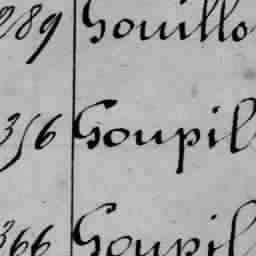 289 Gouillo
356 Goupil
366 Goupil